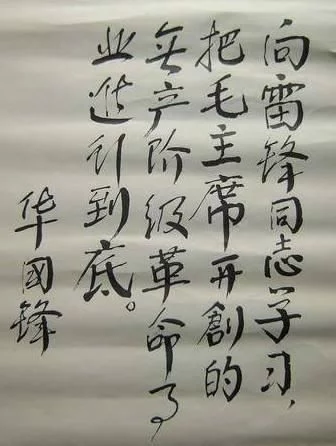 向雷锋同志学习，
把毛主席开創的
無产阶级革命事
业进行到底。
华国锋